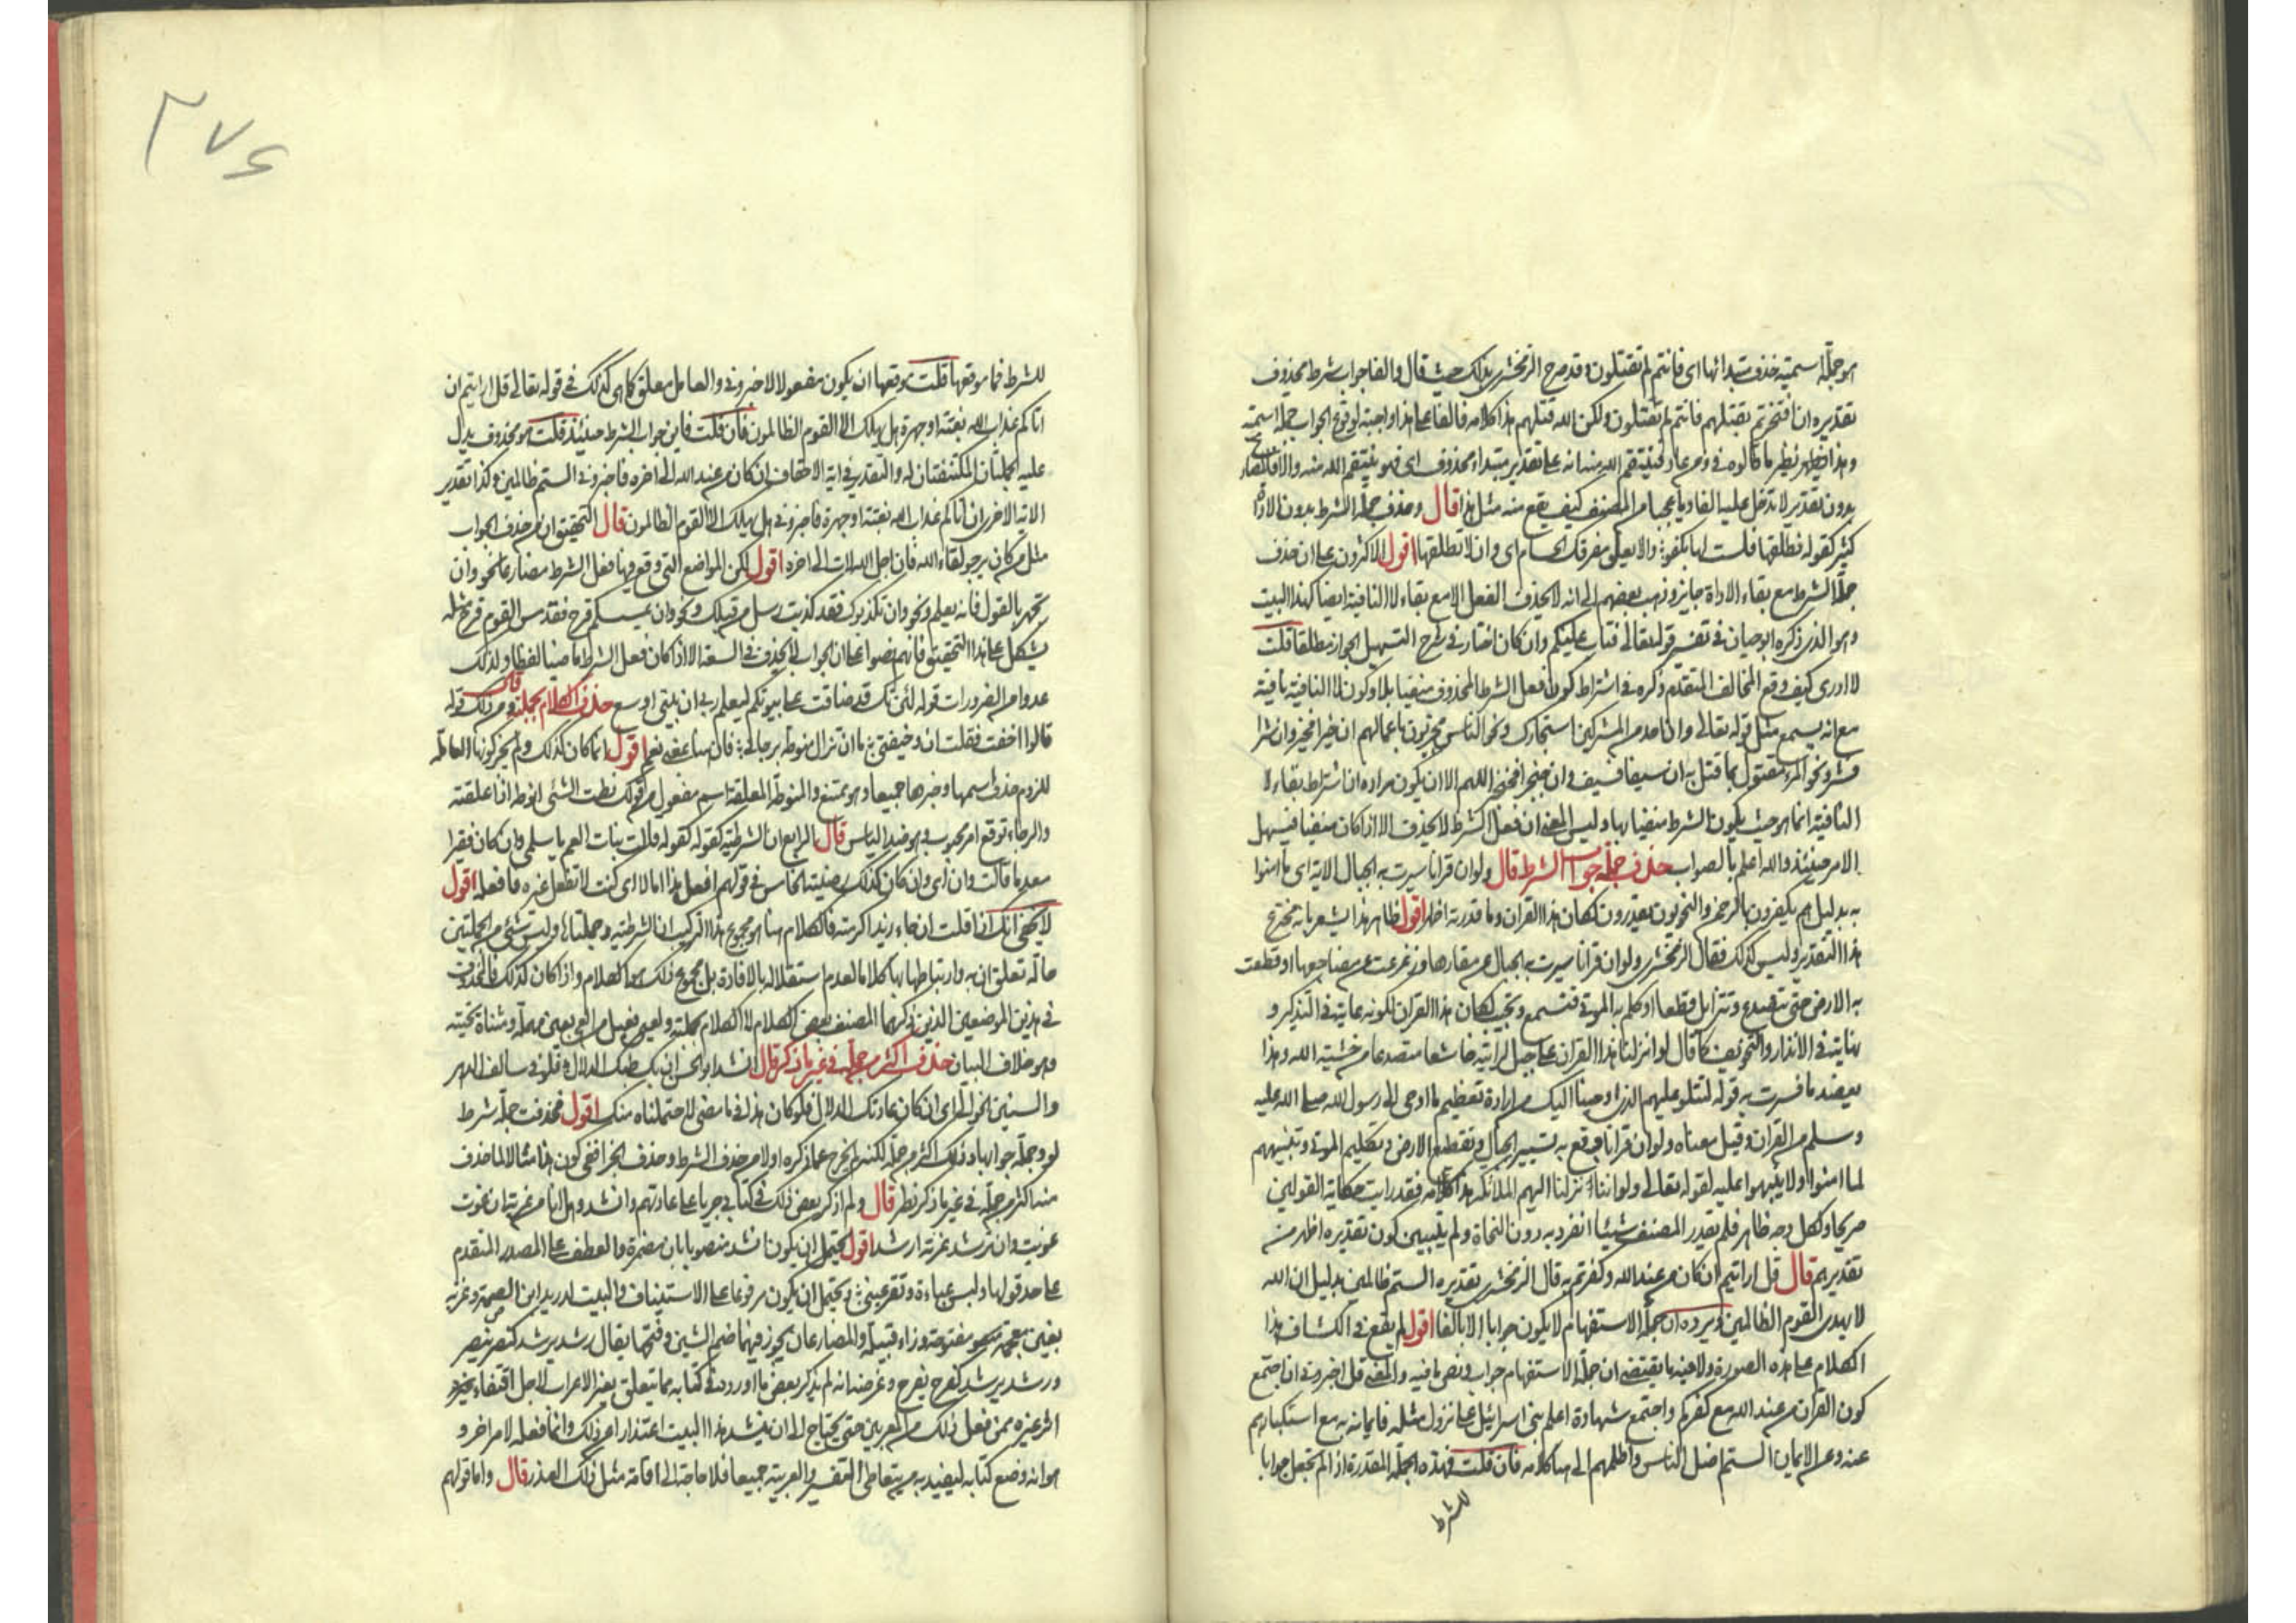 هو جملة اسمية حذف مبتدأها اى فانتم لم تقتلون وقد صرح الزمخشرى بذلك حيث قال والفا جواب شرط محذوف
تقديره ان افتخرتم بقتلهم فانتم لم تقتلون ولكن الله قتلهم هذا كلامه فالفا على هذا واجبة لوقوع الجواب جملة اسمية
وهذا نظير ما قالوه فى ومن عاد فينتقم الله منه انه على تقدير مبتداء محذوف اى فهو ينتقم الله منه والا فالمضارع
بدون تقدير لا تدخل عليه الفا ويا عجبا من المصنف كيف يقع منه مثل هذا قال وحذف جملة الشرط بدون الاداة
كثير كقوله فطلقها فلست لها بكفو والا يعلو مفرقك الحسام اى وان لا تطلقها اقول الاكثرون على ان حذف
جملة الشرط مع بقاء الاداة جايز وذهب بعضهم الى انه لا يحذف الفعل الا مع بقاء لا النافية ايضا كهذا البيت
وهو الذى ذكره ابو حيان فى تفسير قوله تعالى فتاب عليكم وان كان اختار فى شرح التسهيل الجواز مطلقا قلت
لا ادرى كيف وقع المخالف المتقدم ذكره فى اشتراط كون فعل الشرط المحذوف منفيا بلا وكون لا النافية باقية
مع انه يسمع مثل قوله تعالى وان احد من المشركين استجارك ونحو الناس مجزيون باعمالهم ان خيرا فخير وان شرا
فشر ونحو المرء مقتول بما قتل به ان سيفا فسيف وان خنجرا فخنجر اللهم الا ان يكون مراده ان اشتراط بقاء لا
النافية انما هو حيث يكون الشرط منفيا بها وليس المعنى ان فعل الشرط لا يحذف الا اذا كان منفيا فيسهل
الامر حينئذ والله اعلم بالصواب حذف جملة جواب الشرط قال ولو ان قرانا سيرت به الجبال الاية اى ما امنوا
به بدليل هم يكفرون بالرحمن والنحويون يقدرون لكان هذا القران وما قدرته اظهر اقول ظاهر هذا يشعر بانه مخترع
هذا التقدير وليس كذلك فقال الزمخشرى ولو ان قرانا سيرت به الجبال عن مقارها وزعزعت عن مضاجعها او قطعت
به الارض حتى تتصدع وتتزايل قطعا او كلم به الموتى فتسمع وتجيب لكان هذا القران لكونه غاية فى التذكير و
نهاية فى الانذار والتخويف كما قال لو انزلنا هذا القران على جبل لرايته خاشعا متصدعا من خشية الله وهذا
يعضد ما فسرت به قوله لتتلو عليهم الذى اوحينا اليك من ارادة تعظيم ما اوحى الى رسول الله صلى الله عليه
وسلم من القران وقيل معناه ولو ان قرانا وقع به تسيير الجبال وتقطيع الارض وتكليم الموتى وتنبيههم
لما امنوا ولا تنبهوا عليه لقوله تعالى ولو اننا نزلنا اليهم الملائكة هذا كلامه فقد رايت حكاية القولين
صريحا ولكل وجه ظاهر فلم يقدر المصنف شيئا انفرد به دون النحاة ولم يتبين كون تقديره اظهر من
تقديرهم قال قل ارايتم ان كان من عند الله وكفرتم به قال الزمخشرى تقديره الستم ظالمين بدليل ان الله
لا يهدى القوم الظالمين ويرده ان جملة الاستفهام لا يكون جوابا الا بالفا اقول لم يقع فى الكشاف هذا
الكلام على هذه الصورة ولا فيه ما يقتضى ان جملة الاستفهام جواب ونص ما فيه والمعنى قل اخبرونى ان اجتمع
كون القران من عند الله مع كفركم واجتمع شهادة اعلم بنى اسرائيل على نزول مثله فايمانه به مع استكباركم
عنه وعن الايمان الستم اضل الناس واظلمهم الى هنا كلامه فان قلت فهذه الجملة المقدرة اذا لم تجعل جوابا
للشرط
٢٧٤
للشرط فما موقعها قلت موقعها ان يكون مفعولا لاخبرونى والعامل معلق كما هى كذلك فى قوله تعالى قل ارايتم ان
اتاكم عذاب الله بغتة او جهرة هل يهلك الا القوم الظالمون فان قلت فاين جواب الشرط حينئذ قلت هو محذوف يدل
عليه الجملتان المكتنفتان له والتقدير فى اية الاحقاف ان كان من عند الله الى اخره فاخبرونى الستم ظالمين وكذا تقدير
الاية الاخرى ان اتاكم عذاب الله بغتة او جهرة فاخبرونى هل يهلك الا القوم الظالمون قال التحقيق ان من حذف الجواب
مثل من كان يرجو لقاء الله فان اجل الله لات الى اخره اقول لكن المواضع التى وقع فيها فعل الشرط مضارعا نحو وان
تجهر بالقول فانه يعلم ونحو وان تكذبوك فقد كذبت رسل من قبلك ونحو وان يمسسكم قرح فقد مس القوم قرح مثله
يشكل على هذا التحقيق فانهم نصوا على ان الجواب لا يحذف فى السعة الا اذا كان فعل الشرط ماضيا لفظا ولذلك
عدوا من الضرورات قوله لئن تك قد ضاقت على بيوتكم ليعلم ربى ان بيتى اوسع حذف الكلام بجملته قال ومن ذلك قوله
قالوا اخفت فقلت ان وخيفتى ما ان تزال منوطة برجائى فان هنا بمعنى نعم اقول انما كان كذلك ولم يجز كونها العاملة
للزوم حذف اسمها وخبرها جميعا وهو ممتنع والمنوطة المعلقة اسم مفعول من قولك نطت الشئ انوطه اذا علقته
والرجاء توقع امر محبوب وهو ضد الياس قال الرابع ان الشرطية كقوله كقوله قالت بنات العم يا سلمى وان كان فقيرا
معدما قالت وان اى وان كان كذلك رضيته الخامس فى قولهم افعل هذا اما لا اى كنت لا تفعل غيره فافعله اقول
لا يخفى انك اذا قلت ان جاء زيد اكرمته فالكلام هنا هو مجموع هذا التركيب ان الشرطية وجملتاها وليس شئ من الجملتين
حالة تعلق ان به وارتباطها بها كلاما لعدم استقلاله بالافادة بل مجموع ذلك هو الكلام واذا كان كذلك فالمحذوف
فى هذين الموضعين الذين ذكرهما المصنف بعض الكلام لا الكلام بجملته
وهو خلاف البيان حذف اكثر من جملة فى غير ما ذكر قال انشد ابو الحسن ان يك طبك الدلال فلو فى سالف الدهر
والسنين الخوالى اى ان كان عادتك الدلال فلو كان هذا فيما مضى لاحتملناه منك اقول فحذفت جملة شرط
لو وجملة جوابها وذلك اكثر من جملة لكنه لم يخرج عما ذكره اولا من حذف الشرط وحذف الجزا ففى كون هذا مثالا لما حذف
منه اكثر من جملة فى غير ما ذكر نظر قال ولم اذكر بعض ذلك فى كتابى جريا على عادتهم وانشد وهل انا الا من غزية ان غوت
غويت وان ترشد غزية ارشد اقول يحتمل ان يكون انشد منصوبا بان مضمرة والعطف على المصدر المتقدم
على حد قولها ولبس عباءة وتقر عينى ويحتمل ان يكون مرفوعا على الاستيناف والبيت لدريد ابن الصمة وغزية
بغين معجمة مفتوحة وزاء قبيلة والمضارعان يجوز فيهما ضم الشين وفتحها يقال رشد يرشد كنصر ينصر
ورشد يرشد كفرح يفرح وغرضه انه لم يذكر بعض ما اوردوه فى كتابه مما يتعلق بغير الاعراب لاجل اقتفاء
اثر غيره ممن فعل ذلك من المعربين حتى يحتاج الى ان ينشد هذا البيت اعتذارا من ذلك وانما فعله لامر اخر و
هو انه وضع كتابه ليفيد به من يتعاطى التفسير والعربية جميعا فلا حاجة الى اقامة مثل ذلك العذر قال واما قولهم